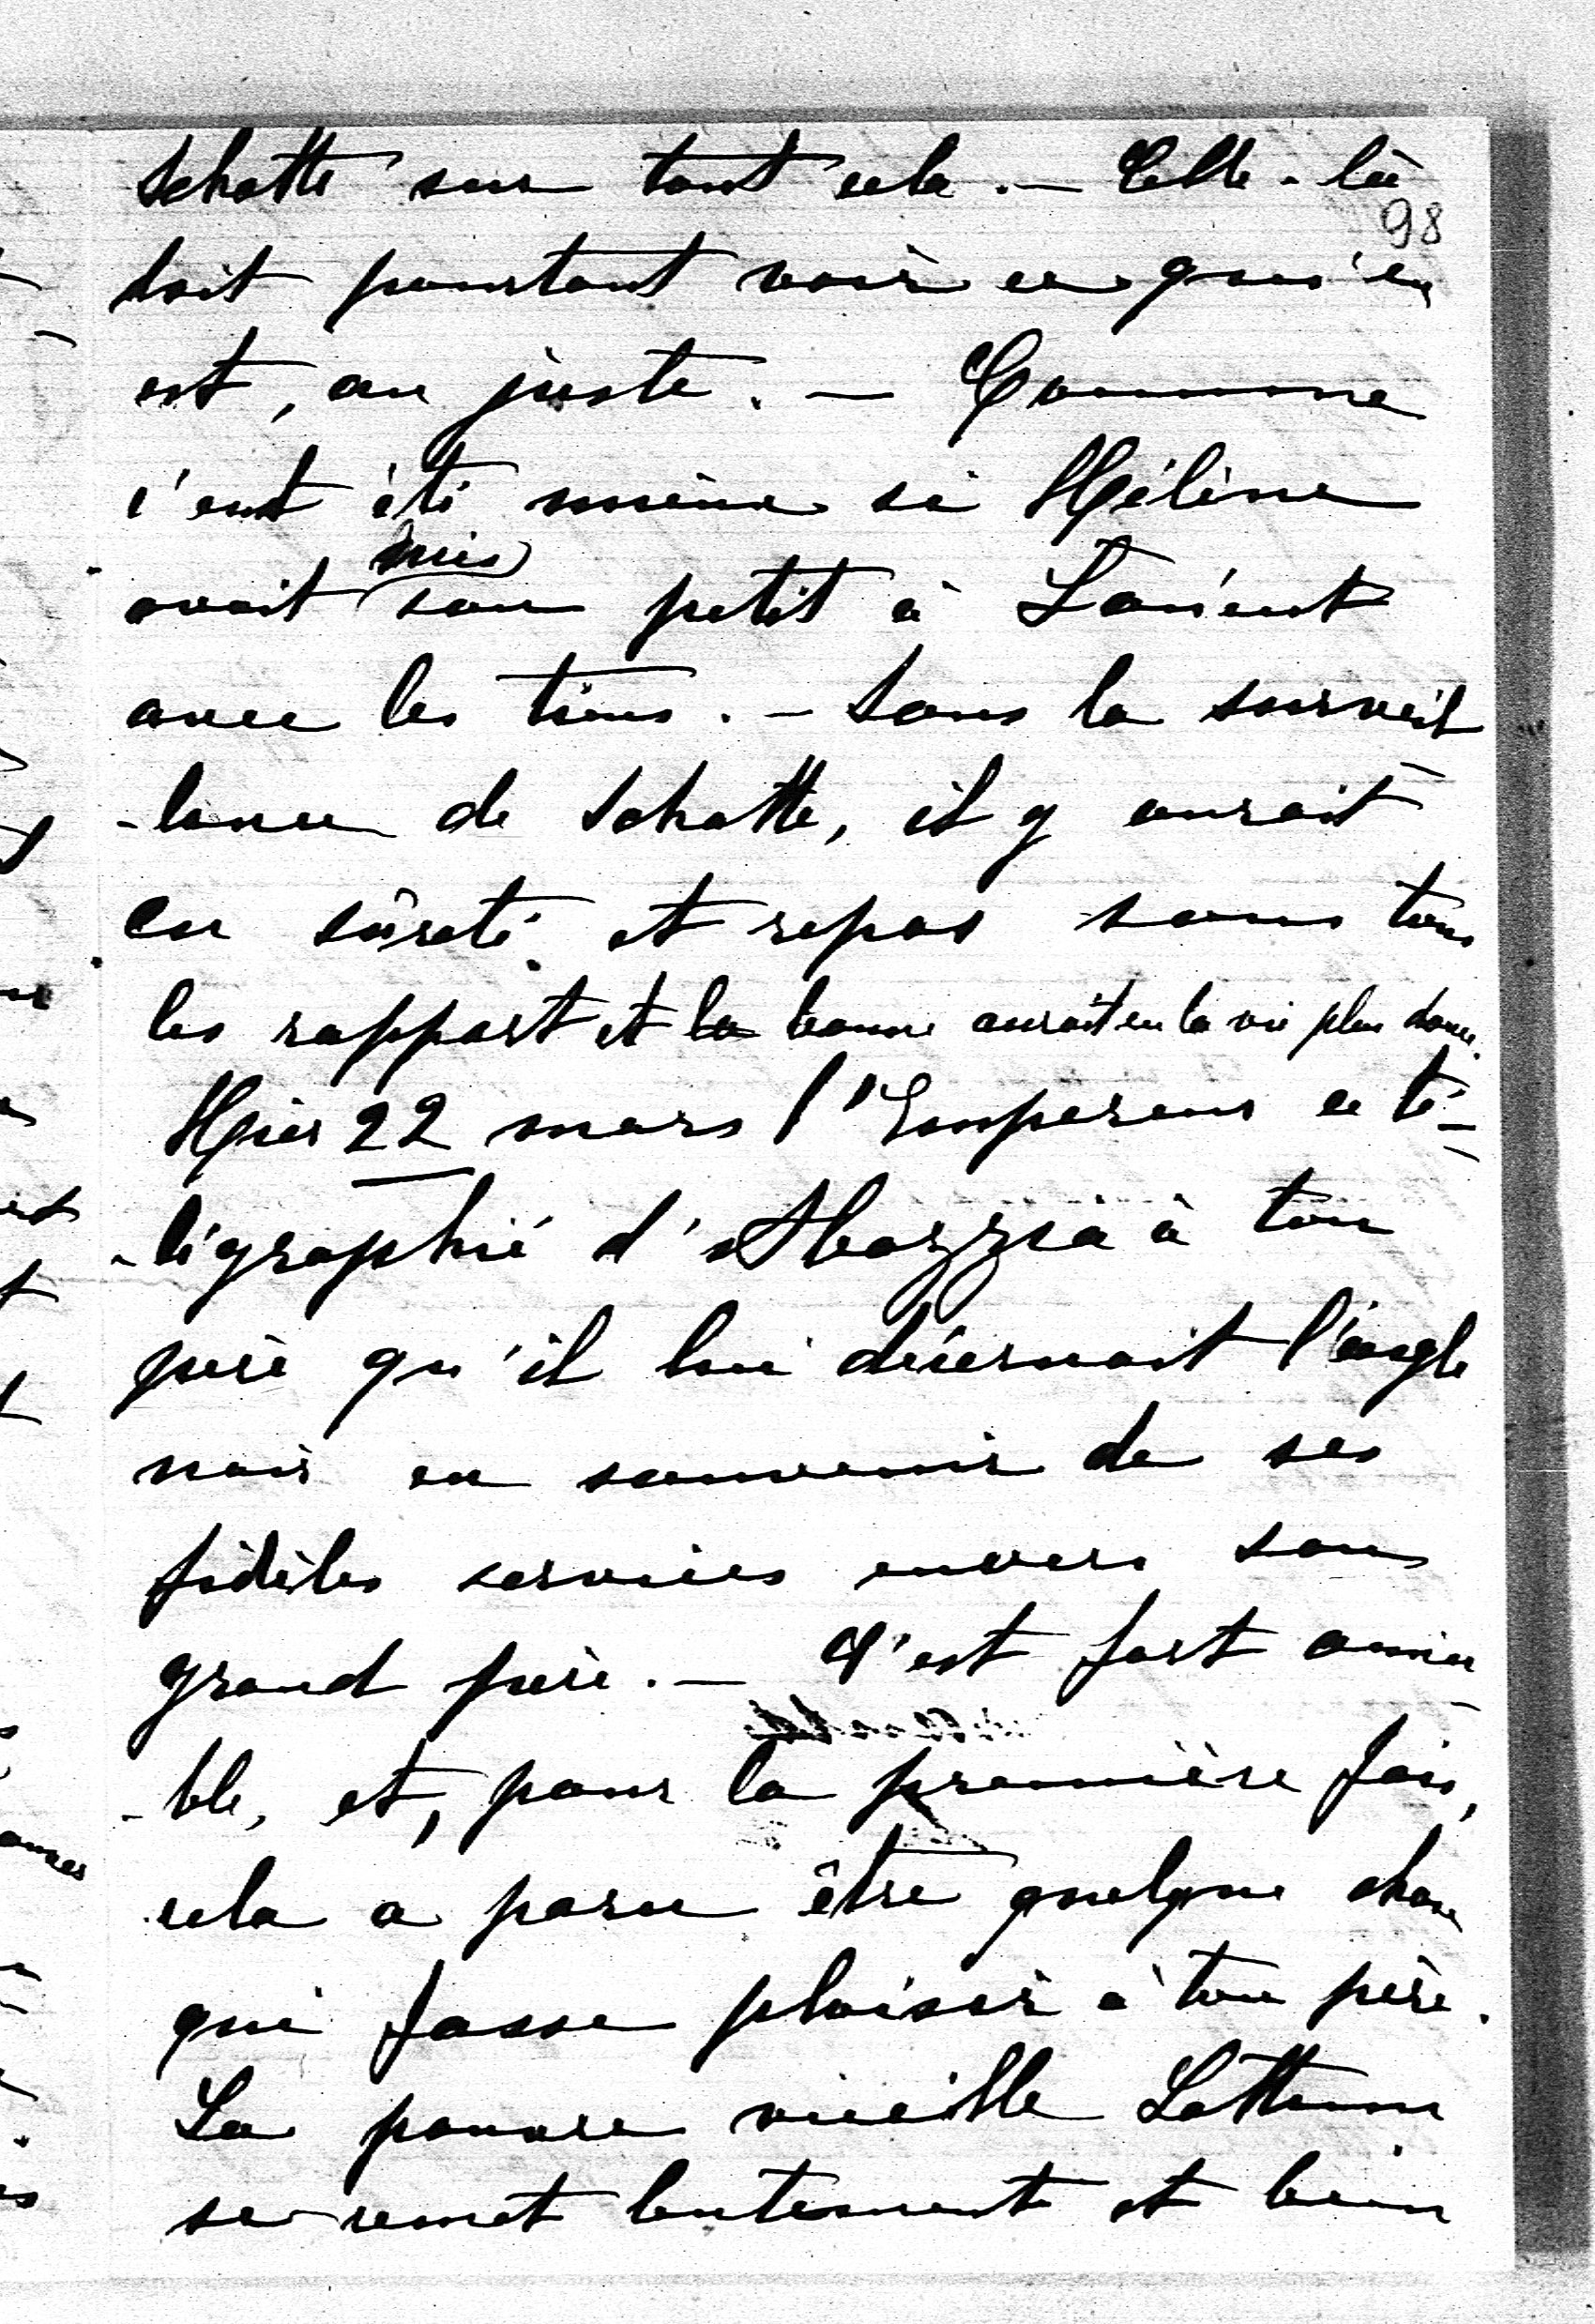 Schatte sur tout cela. — Celle-là
98
doit pourtant voir ce qui en
est, au juste. — Comme
c'eut été mieux si Hélène
avait mis son petit à
avec les tiens. — Sous la surveil
-lance de Schatte, il y aurait
eu sûreté et repos sous tous
les rapport et la bonne aurait eu la vie plus douce.
Hier 22 mars l'Empereur a té-
-légraphié d'Abazzia à ton
père qu'il lui décernait l'aigle
noir en souvenir de ses
fidèles services envers son
grand père. — C'est fort aima
-ble, et, pour la première fois,
cela a paru être quelque chose
qui fasse plaisir à ton père.
La pauvre vieille
se remet lentement et bien